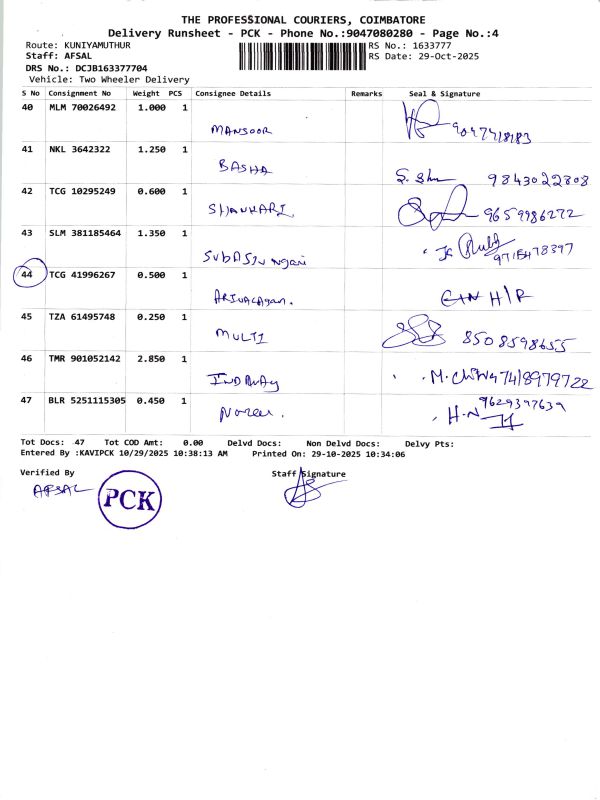 THE PROFESSIONAL COURIERS, COIMBATORE
Delivery Runsheet - PCK - Phone No.:9047080280 - Page No.:4
Route: KUNIYAMUTHUR RS No.: 1633777
Staff: AFSAL RS Date: 29-Oct-2025
DRS No.: DCJB163377704
Vehicle: Two Wheeler Delivery
S No Consignment No Weight PCS Consignee Details Remarks Seal & Signature
40 MLM 70026492 1.000 1
MANSOOR
41 NKL 3642322 1.250 1
BASHA 9843022808
42 TCG 10295249 0.600 1
9659986272
43 SLM 381185464 1.350 1
44 TCG 41996267 0.500 1
H/R
45 TZA 61495748 0.250 1
MULTI 8508598655
46 TMR 901052142 2.850 1
7418979722
47 BLR 5251115305 0.450 1
9629397639
H.N
Tot Docs: 47 Tot COD Amt: 0.00 Delvd Docs: Non Delvd Docs: Delvy Pts:
Entered By :KAVIPCK 10/29/2025 10:38:13 AM Printed On: 29-10-2025 10:34:06
Verified By Staff Signature
AFSAL PCK